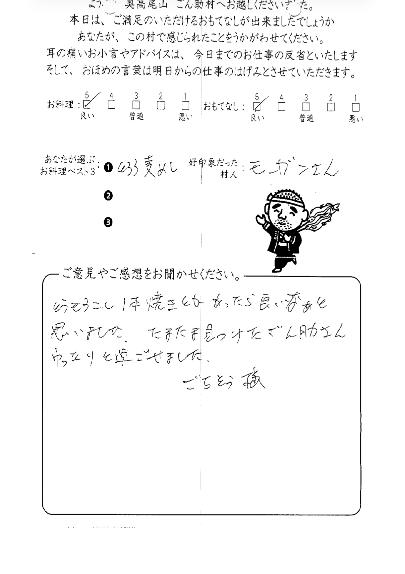 奥高尾山 ごん助村へお越しくださいました。
本日は、ご満足のいただけるおもてなしが出来ましたでしょうか
あなたが、この村で感じられたことをうかがわせてください。
耳の痛いお小言やアドバイスは、今日までのお仕事の反省といたします
そして、おほめの言葉は明日からの仕事のはげみとさせていただきます。
お料理: 5 4 3 2 1 おもてなし: 5 4 3 2 1
良い 普通 悪い 良い 普通 悪い
あなたが選ぶ お料理ベスト3 : ❶ 麦めし 好印象だった 村人 : モガンさん
❷
❸
ご意見やご感想をお聞かせください。
とうもろこし1本焼きとかあったら良い
思いました。たまたま見つけたごん助さん
ゆったりと過ごせました。
ごちそう様